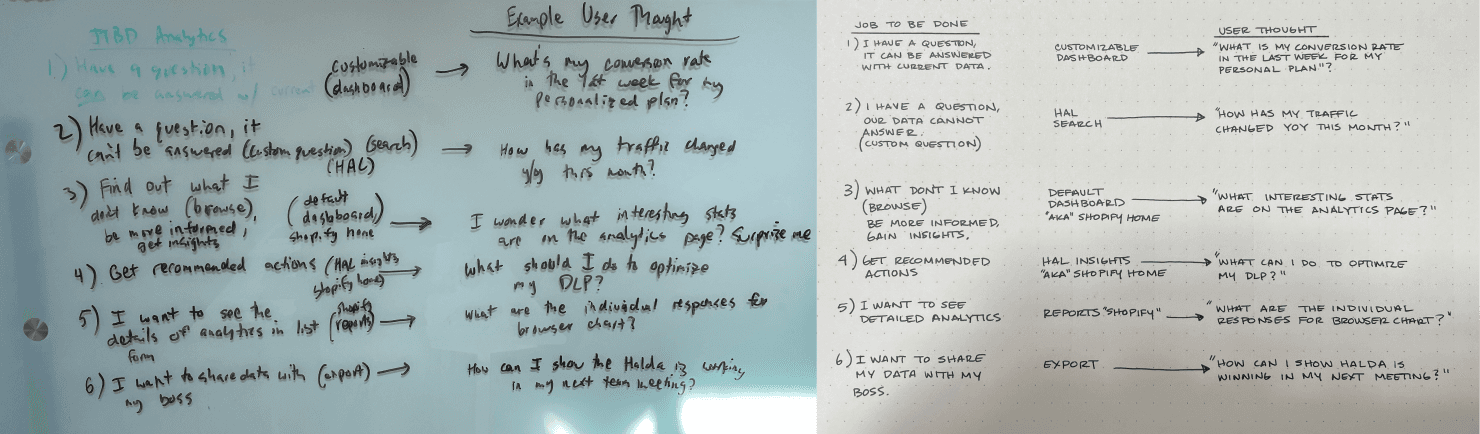 JTBD Analytics
Example User Thought
1) Have a question, it
can be answered w/ current
(customizable
dashboard)
What's my conversion rate
in the 1st week for my
personalized plan?
2) Have a question, it
can't be answered (custom question) (search)
(HAL)
How has my traffic changed
y/y this month?
3) Find out what I
don't know (browse),
be more informed,
get insights
(default
dashboard,
shopify home
I wonder what interesting stats
are on the analytics page? Surprise me
4) Get recommended actions (HAL insights
shopify home)
What should I do to optimize
my DLP?
5) I want to see the
details of analytics in list
form
(shopify
reports)
What are the individual responses for
browser chart?
6) I want to share data with (export)
my boss
How can I show the Halda is working
in my next team meeting?
JOB TO BE DONE
USER THOUGHT
1) I HAVE A QUESTION,
IT CAN BE ANSWERED
WITH CURRENT DATA.
CUSTOMIZABLE
DASHBOARD
"WHAT IS MY CONVERSION RATE
IN THE LAST WEEK FOR MY
PERSONAL PLAN"?
2) I HAVE A QUESTION,
OUR DATA CANNOT
ANSWER.
(CUSTOM QUESTION)
HAL
SEARCH
"HOW HAS MY TRAFFIC
CHANGED YOY THIS MONTH?"
3) WHAT DONT I KNOW
(BROWSE)
BE MORE INFORMED,
GAIN INSIGHTS.
DEFAULT
DASHBOARD
"AKA" SHOPIFY HOME
"WHAT INTERESTING STATS
ARE ON THE ANALYTICS PAGE?"
4) GET RECOMMENDED
ACTIONS
HAL INSIGHTS
"AKA" SHOPIFY HOME
"WHAT CAN I DO TO OPTIMIZE
MY DLP?"
5) I WANT TO SEE
DETAILED ANALYTICS
REPORTS "SHOPIFY"
"WHAT ARE THE INDIVIDUAL
RESPONSES FOR BROWSER CHART?"
6) I WANT TO SHARE
MY DATA WITH MY
BOSS.
EXPORT
"HOW CAN I SHOW HALDA IS
WINNING IN MY NEXT MEETING?"